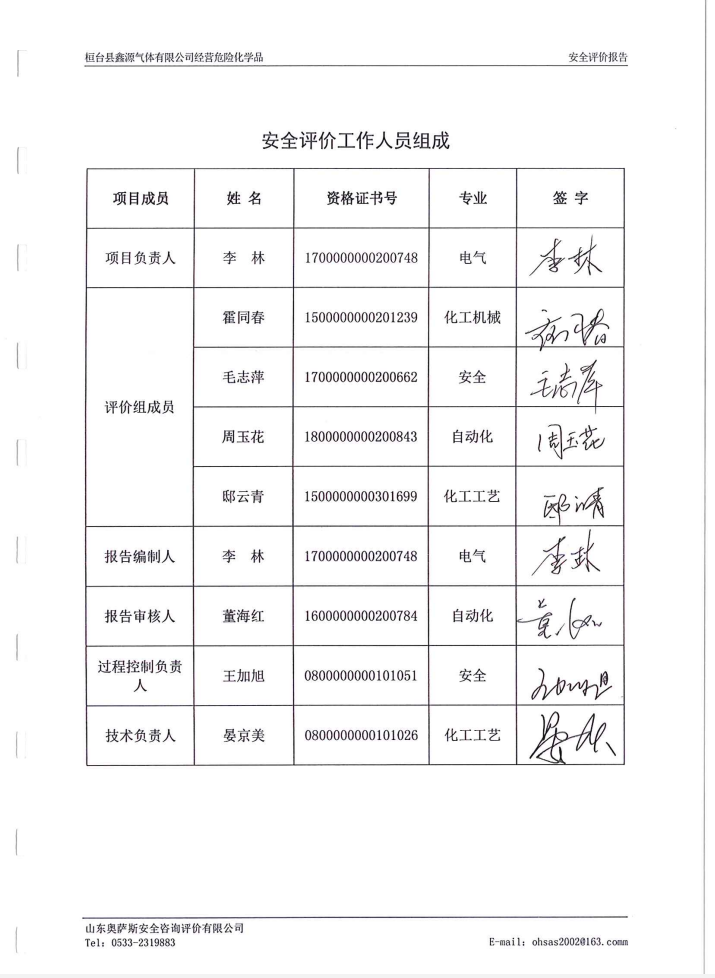 桓台县鑫源气体有限公司经营危险化学品 安全评价报告
安全评价工作人员组成
项目成员 姓 名 资格证书号 专业 签 字
项目负责人 李 林 1700000000200748 电气 李林
评价组成员
霍同春 1500000000201239 化工机械
毛志萍 1700000000200662 安全 毛志萍
周玉花 1800000000200843 自动化 周玉花
邸云青 1500000000301699 化工工艺
报告编制人 李 林 1700000000200748 电气 李林
报告审核人 董海红 1600000000200784 自动化
过程控制负责
人
王加旭 0800000000101051 安全
技术负责人 晏京美 0800000000101026 化工工艺
山东奥萨斯安全咨询评价有限公司
Tel: 0533-2319883 E-mail: ohsas2002@163.comm